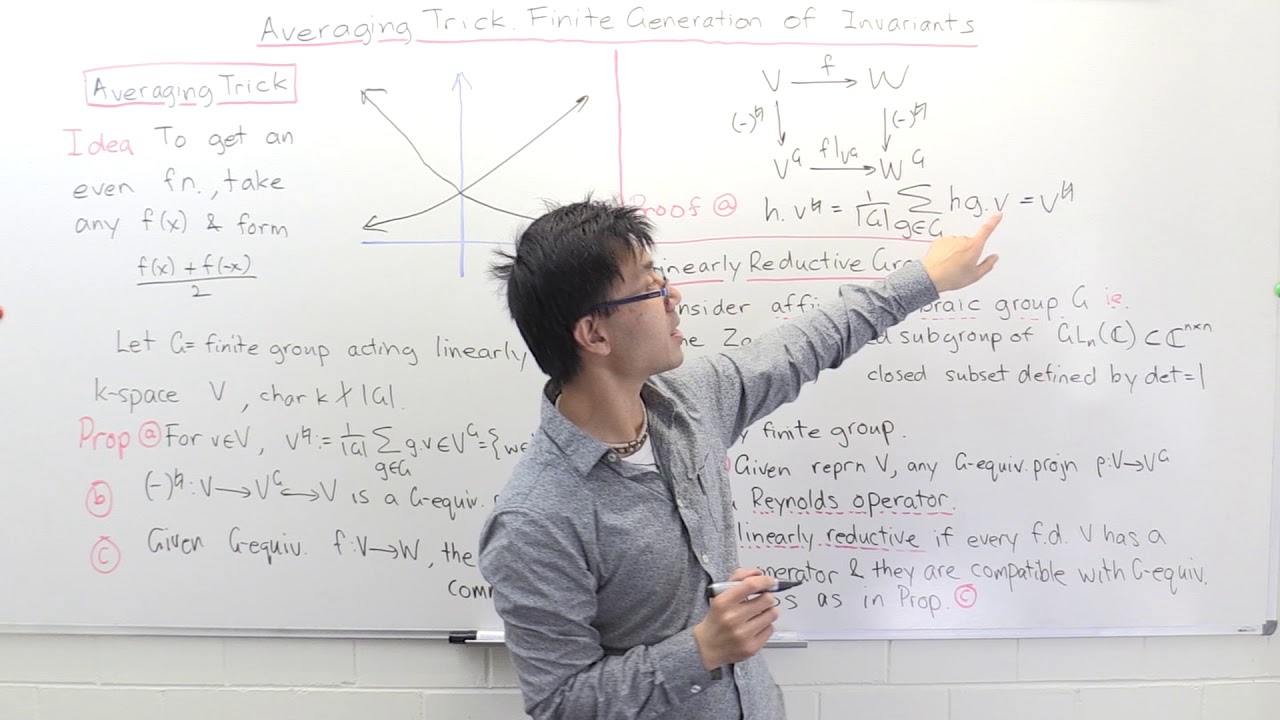 Averaging Trick. Finite Generation of Invariants
Averaging Trick
Idea To get an
even fn., take
any f(x) & form
f(x) + f(-x)
2
Let G = finite group acting linearly
k-space V, char k ∤ |G|.
Prop ⓐ For v∈V, v^♮ := 1/|G| ∑_{g∈G} g.v ∈ V^G = {w∈
ⓑ (-)^♮ : V → V^G ↪ V is a G-equiv.
ⓒ Given G-equiv. f: V → W, the
V f→ W
(-)^♮ ↓ ↓ (-)^♮
V^G f|_{V^G}→ W^G
Proof ⓐ h.v^♮ = 1/|G| ∑_{g∈G} hg.v = v^♮
Linearly Reductive
group G ie.
subgroup of GLn(ℂ) ⊂ ℂ^{n×n}
closed subset defined by det=1
finite group.
Given reprn V, any G-equiv. projn ρ: V → V^G
Reynolds operator.
linearly reductive if every f.d. V has a
& they are compatible with G-equiv.
as in Prop. ⓒ